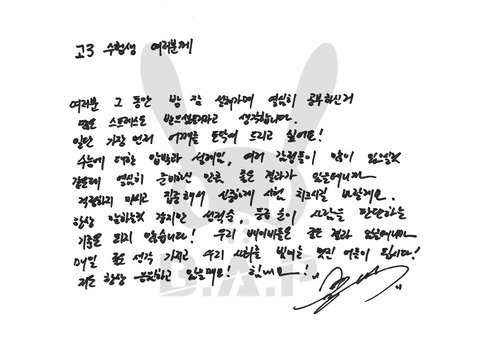 고3 수험생 여러분께
여러분 그 동안 밤 잠 설쳐가며 열심히 공부하신거
많은 스트레스도 받으셨을거라고 생각합니다.
일단 가장 먼저 어깨를 토닥여 드리고 싶어요!
수능에 대한 압박과 설레임, 여러 감정들이 많이 있으실것
같은데 열심히 준비하신 만큼 좋은 결과가 있을테니까
걱정하지 마시고 집중해서 신중하게 시험 치르시길 바랄게요.
항상 말하는것 같지만 성적순, 등수 순이 사람을 판단하는
기준은 되지 않습니다! 우리 베이비들은 좋은 결과 있을테니까
매일 좋은 생각 가지고 우리 사회를 빛내는 멋진 어른이 됩시다!
저도 항상 응원하고 있을게요! 힘내요!
B.A.P